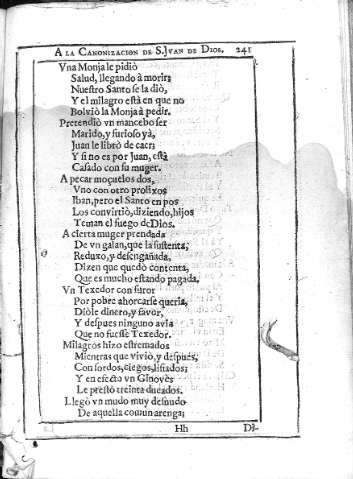 A LA CANONIZACION DE S. JVAN DE DIOS. 241
Vna Monja le pidiò
Salud, llegando à morir;
Nuestro Santo se la diò,
Y el milagro està en que no
Bolviò la Monja à pedir.
Pretendiò vn mancebo ser
Marido, y furioso yà,
Juan le librò de caer;
Y si no es por Juan, està
Casado con su muger.
A pecar moçuelos dos,
Vno con otro prolixos
Iban, pero el Santo en pos
Los convirtiò, diziendo, hijos
Teman el fuego de Dios.
A cierta muger prendada
De vn galan, que la sustenta,
Reduxo, y desengañada,
Dizen que quedò contenta,
Que es mucho estando pagada.
Vn Texedor con furor
Por pobre ahorcarse queria,
Diòle dinero, y favor,
Y despues ninguno avia
Que no fuesse Texedor.
Milagros hizo estremados
Mientras que viviò, y despues,
Con sordos, ciegos, lisiados;
Y en efecto vn Ginovès
Le prestò treinta ducados.
Llegò vn mudo muy desnudo
De aquella comun arenga;
Hh Di-